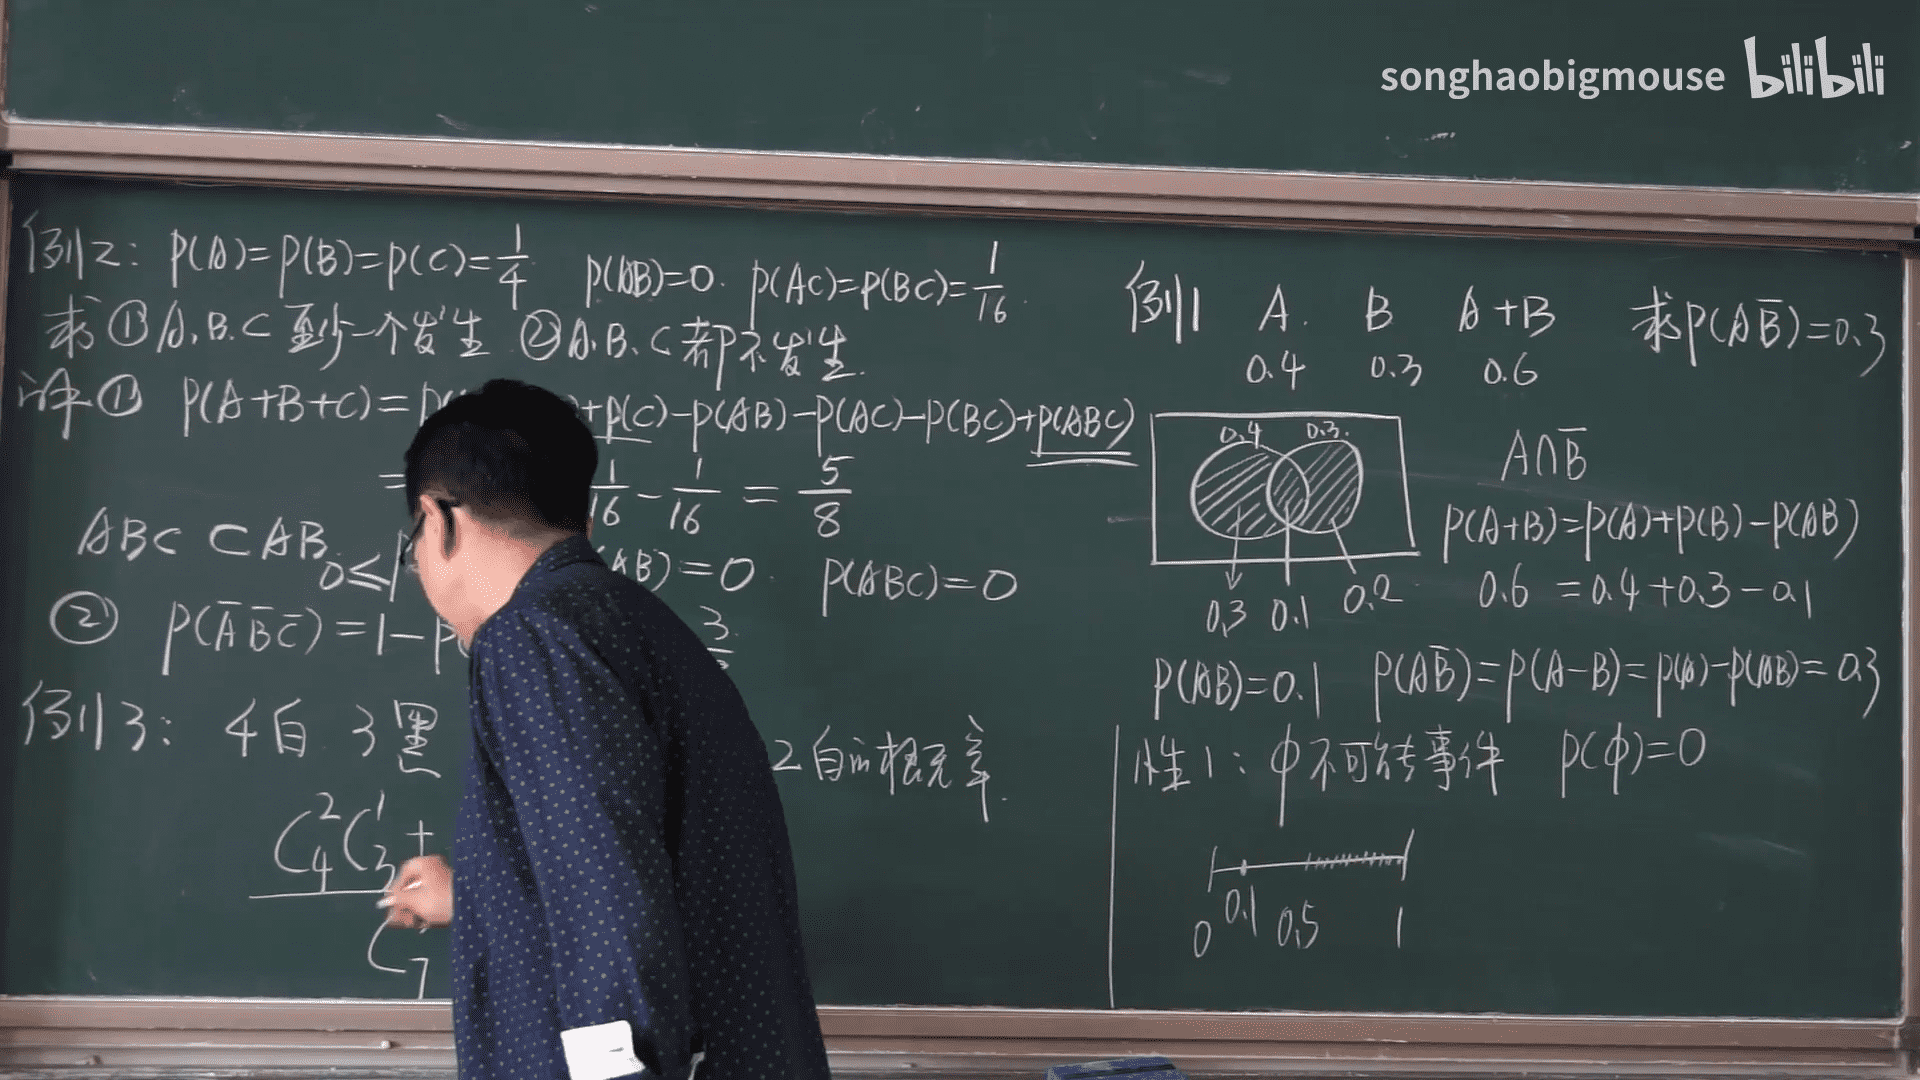 songhaobigmouse bilibili
例2: P(A)=P(B)=P(C)=1/4 P(AB)=0. P(AC)=P(BC)=1/16
求①A.B.C至少一个发生 ②A.B.C都不发生.
解① P(A+B+C)=P( +P(C)-P(AB)-P(AC)-P(BC)+P(ABC)
= 1/16 - 1/16 = 5/8
ABC⊂AB 0≤P AB)=0. P(ABC)=0
② P(A̅B̅C̅)=1-P 3
例3: 4白 3黑 2白的概率.
C₄²C₃¹+
C₇
例1 A. B A+B 求P(AB̅)=0.3
0.4 0.3 0.6
0.4 0.3.
A∩B̅
P(A+B)=P(A)+P(B)-P(AB)
0.6 =0.4+0.3-0.1
0.3 0.1 0.2
P(AB)=0.1 P(AB̅)=P(A-B)=P(A)-P(AB)=0.3
性1: φ不可能事件 P(φ)=0
0 0.1 0.5 1